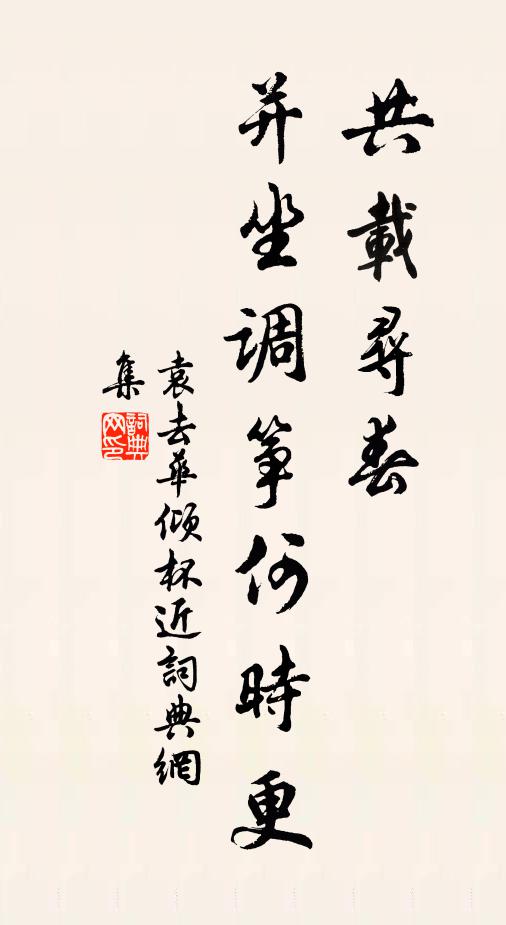 共載尋春
并坐調筝何時更
袁去華傾杯近詞典網
集
詞典
网印